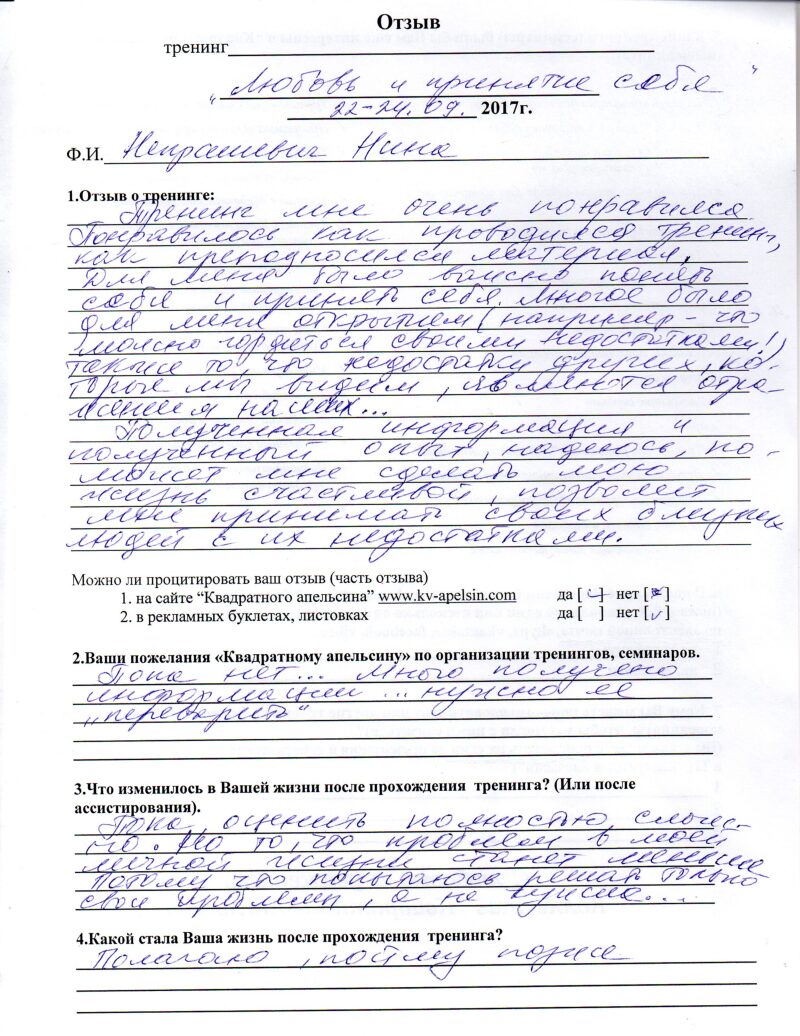 Отзыв
тренинг
"Любовь и принятие себя"
22-24.09. 2017г.
Ф.И. Непрашевич Нина
1.Отзыв о тренинге:
Тренинг мне очень понравился
Понравилось как проводился тренинг,
как преподносился материал.
Для меня было важно понять
себя и принять себя. Многое было
для меня открытием (например - что
можно гордиться своими недостатками!)
также то, что недостатки других, ко-
торые мы видим, являются отра-
жением наших...
Полученная информация и
полученный опыт, надеюсь, по-
может мне сделать мою
жизнь счастливой, позволит
мне принимать своих близких
людей с их недостатками.
Можно ли процитировать ваш отзыв (часть отзыва)
1. на сайте “Квадратного апельсина” www.kv-apelsin.com да [ ] нет [ ]
2. в рекламных буклетах, листовках да [ ] нет [ ]
2.Ваши пожелания «Квадратному апельсину» по организации тренингов, семинаров.
Пока нет... Много получено
информации... нужно ее
"переварить"
3.Что изменилось в Вашей жизни после прохождения тренинга? (Или после
ассистирования).
Пока оценить полностью слож-
но. Но то, что проблем в моей
личной жизни станет меньше
Потому что попытаюсь решать только
свои проблемы, а не чужие...
4.Какой стала Ваша жизнь после прохождения тренинга?
Полагаю, пойму позже